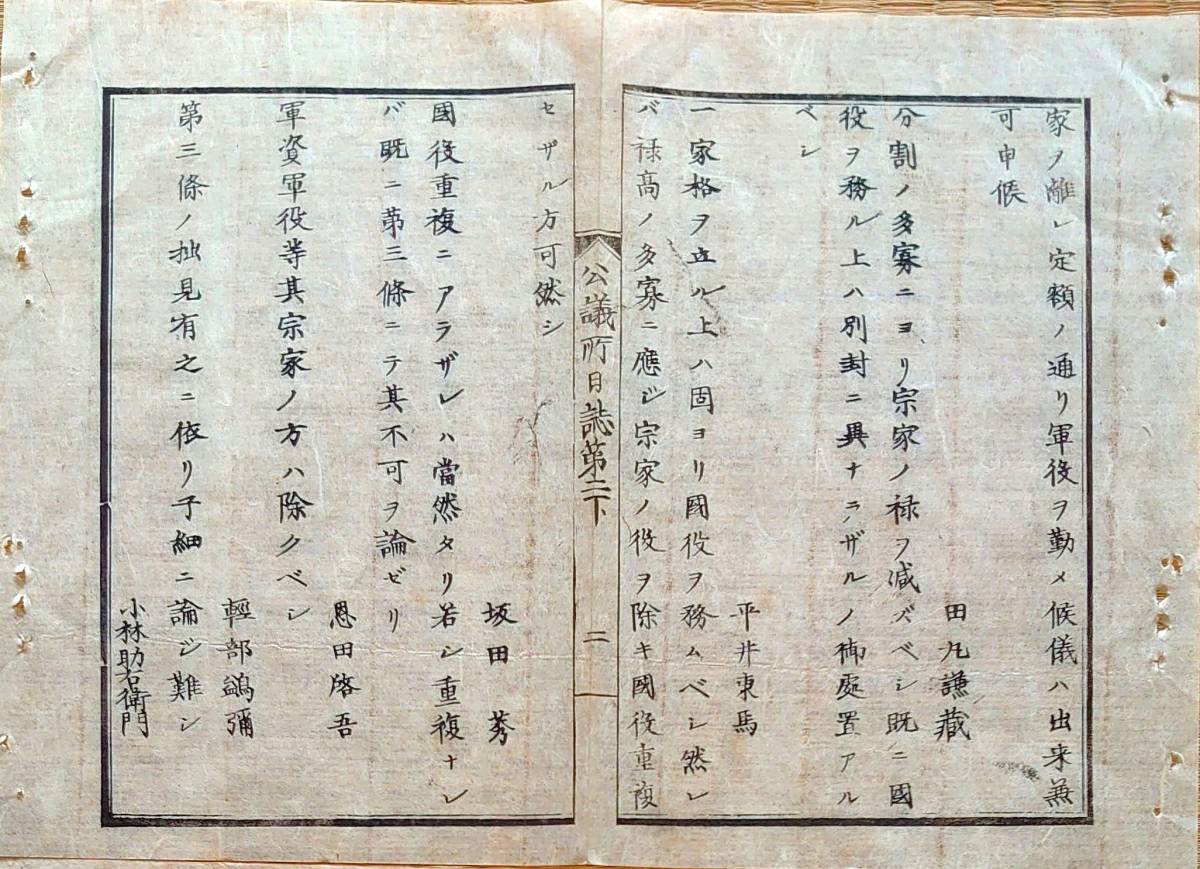 家ノ離レ定額ノ通リ軍役ヲ勤メ候儀ハ出来兼
可申候
田丸謙蔵
分割ノ多寡ニヨリ宗家ノ禄ヲ減ズベシ既ニ國
役ヲ務ル上ハ別封ニ異ナラザルノ御處置アル
ベシ
平井東馬
一家格ヲ立ル上ハ固ヨリ國役ヲ務ムベシ然レ
バ禄高ノ多寡ニ應ジ宗家ノ役ヲ除キ國役重複
公議所日誌第二下
二
セザル方可然シ
坂田莠
國役重複ニアラザレハ當然タリ若シ重複ナレ
バ既ニ第三條ニテ其不可ヲ論ゼリ
恩田啓吾
軍資軍役等其宗家ノ方ハ除クベシ
輕部鷁彌
第三條ノ拙見有之ニ依リ子細ニ論ジ難シ
小林助右衛門